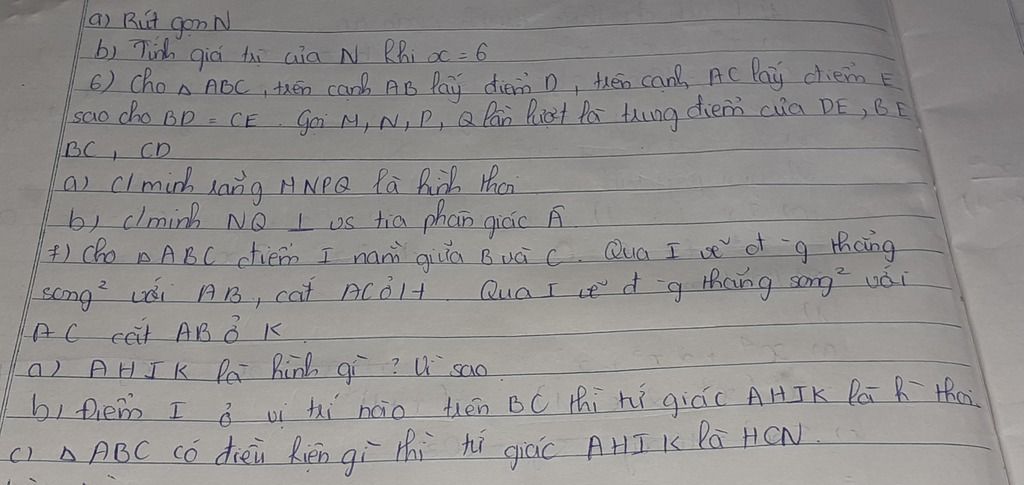 a) Rút gọn N
b) Tính giá trị của N khi x = 6
6) Cho △ ABC, trên cạnh AB lấy điểm D, trên cạnh AC lấy điểm E
sao cho BD = CE. Gọi M, N, P, Q lần lượt là trung điểm của DE, BE
BC, CD
a) c/minh rằng MNPQ là hình thoi
b) c/minh NQ ⊥ vs tia phân giác Â
7) Cho △ ABC điểm I nằm giữa B và C. Qua I vẽ đ-g thẳng
song² với AB, cắt AC ở H. Qua I vẽ đ-g thẳng song² với
AC cắt AB ở K.
a) AHIK là hình gì? Vì sao
b) Điểm I ở vị trí nào trên BC thì tứ giác AHIK là h thoi.
c) △ ABC có điều kiện gì thì tứ giác AHIK là HCN.